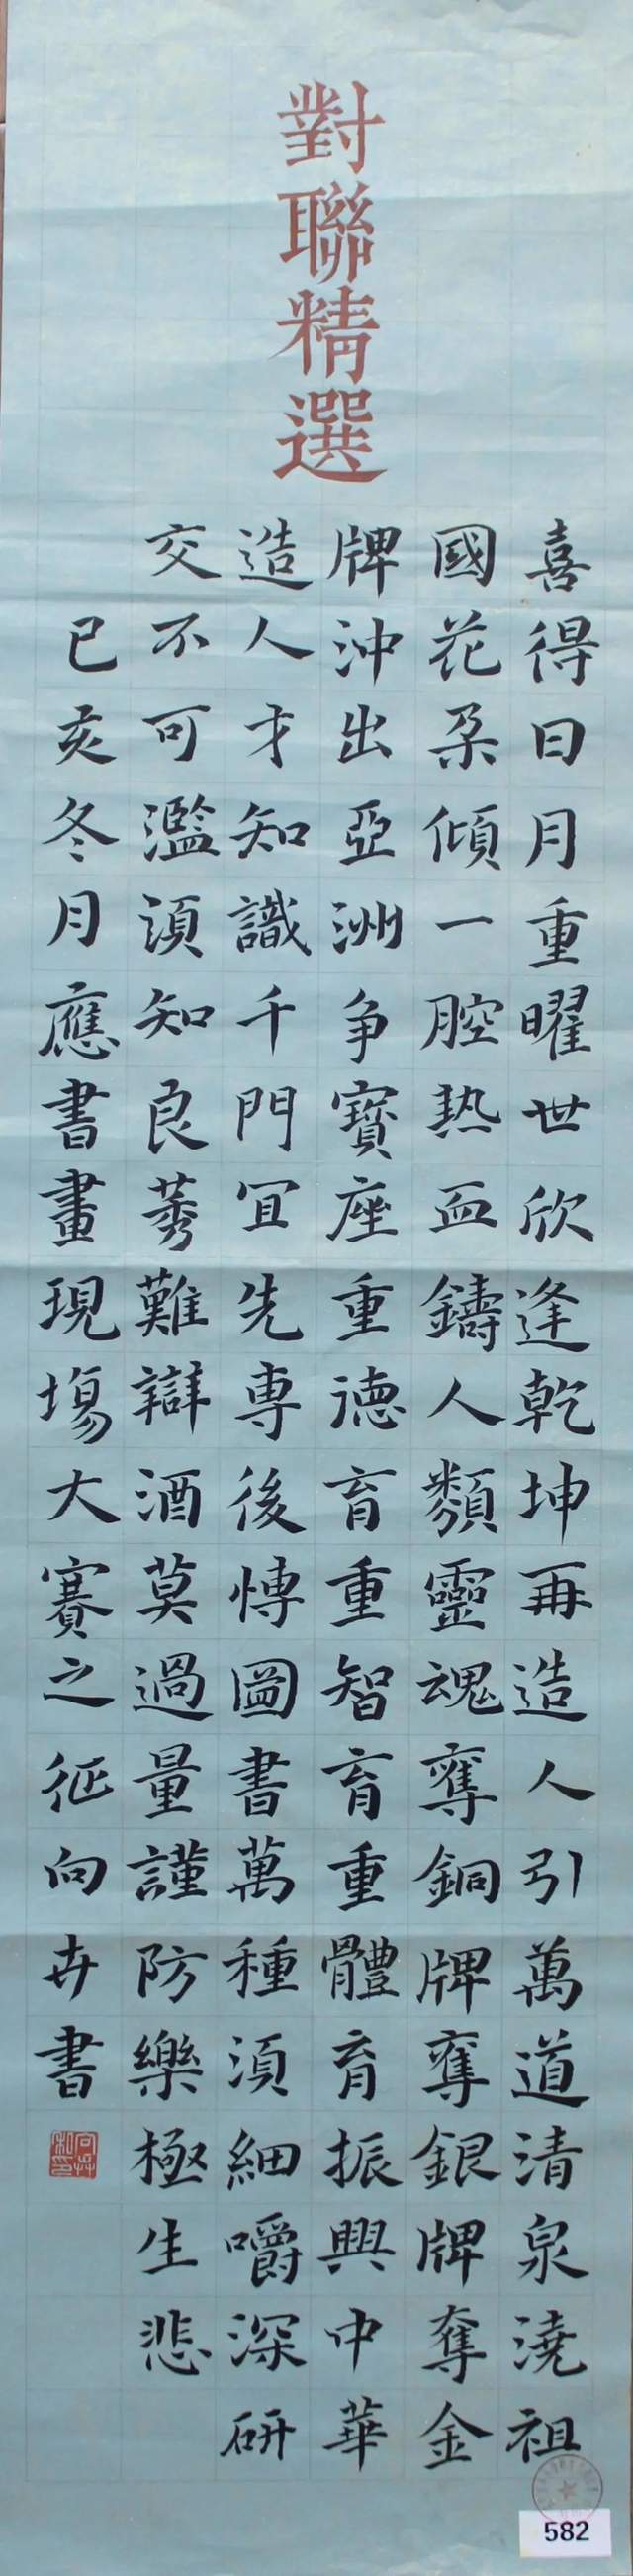 對聯精選
喜得日月重曜世欣逢乾坤再造人引萬道清泉澆祖
國花朵傾一腔熱血鑄人類靈魂奪銅牌奪銀牌奪金
牌沖出亞洲争寶座重德育重智育重體育振興中華
造人才知識千門宜先專後博圖書萬種須細嚼深研
交不可濫須知良莠難辯酒莫過量謹防樂極生悲
已亥冬月應書畫現場大賽之征向卉書
582